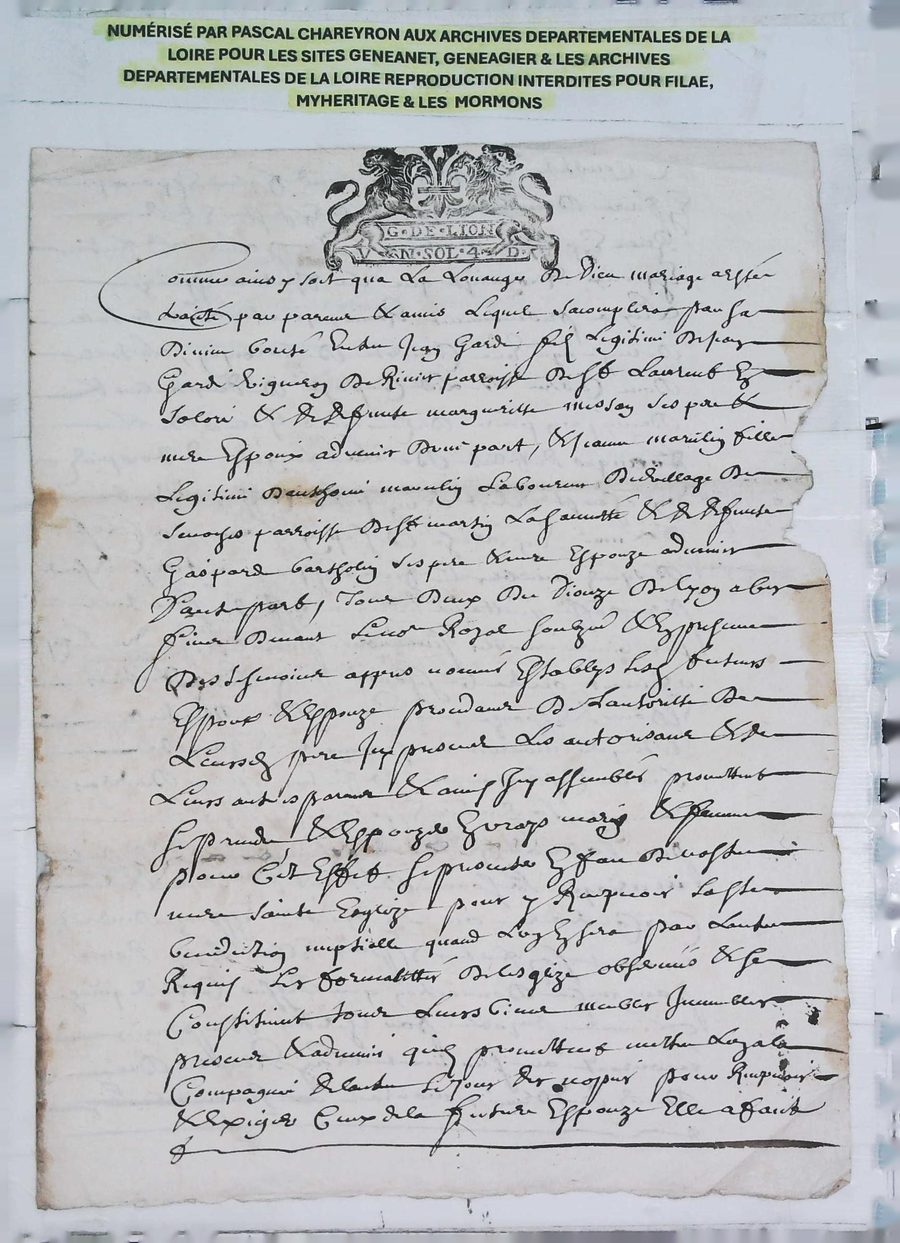 NUMÉRISÉ PAR PASCAL CHAREYRON AUX ARCHIVES DEPARTEMENTALES DE LA
LOIRE POUR LES SITES GENEANET, GENEAGIER & LES ARCHIVES
DEPARTEMENTALES DE LA LOIRE REPRODUCTION INTERDITES POUR FILAE,
MYHERITAGE & LES MORMONS
G·DE·LION
V N·SOL·4·D·
Comme ainsy soit qua La Louange De Dieu mariage a esté
traité par parens & amis Lequel Sacomplira par sa
Divine bonté Entre Jean Gardi fils Legitime De Jean
Gardi Vigneron De Rivir parroisse De St Laurent
& De deffunte margueritte ses pere &
mere Espoux advenir D'une part, & Jeanne fille
Legitime D'anthoine Laboureur Du Village De
parroisse De St martin & De deffunte
Gaspard bartholin ses pere & mere Espouze advenir
D'autre part, Tous Deux Du Dioceze De Lyon
Devant Royal &
Des tesmoins appres nommés Establys Les futurs
Espoux & Espouze procedans De L'autoritté De
Leursd pere Icy presens Les autorisans & de
Leurs autres parens & amis Icy assemblés promettent
se prendre & Espouzer En vrays maris & femme
pour Cet Effet se presenter En face De nostre
mere Sainte Esglize pour y Recepvoir La ste
benediction nuptialle quand L'un En sera par L'autre
Requis Les formalittés De Lesglize observés & se
Constituent tous Leurs biens meubles Immeubles
presens & advenir quils promettent mettre
Compagnie de Lautre Le Jour des nopces pour Recepvoir
& Exiger Ceux de la future Espouze Elle a fait